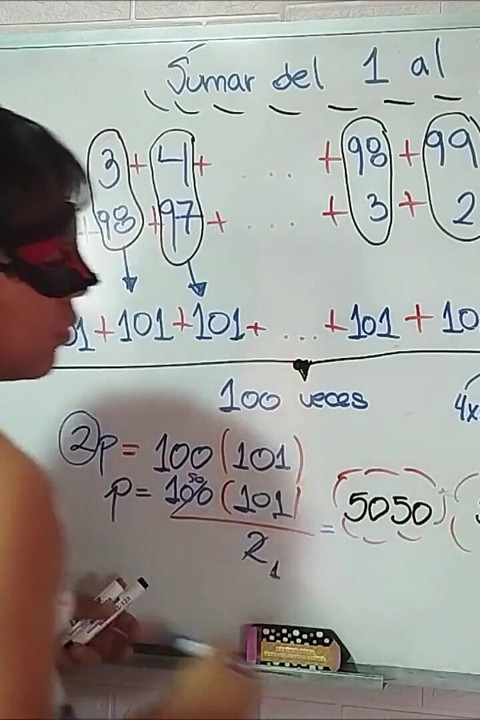 Sumar del 1 al
3 + 4 + .... + 98 + 99
+ 98 + 97 + .... + 3 + 2
01 + 101 + 101 + ... + 101 + 10
100 veces
4x
2p = 100 (101)
p = 100 (101) = 5050
50
2 1